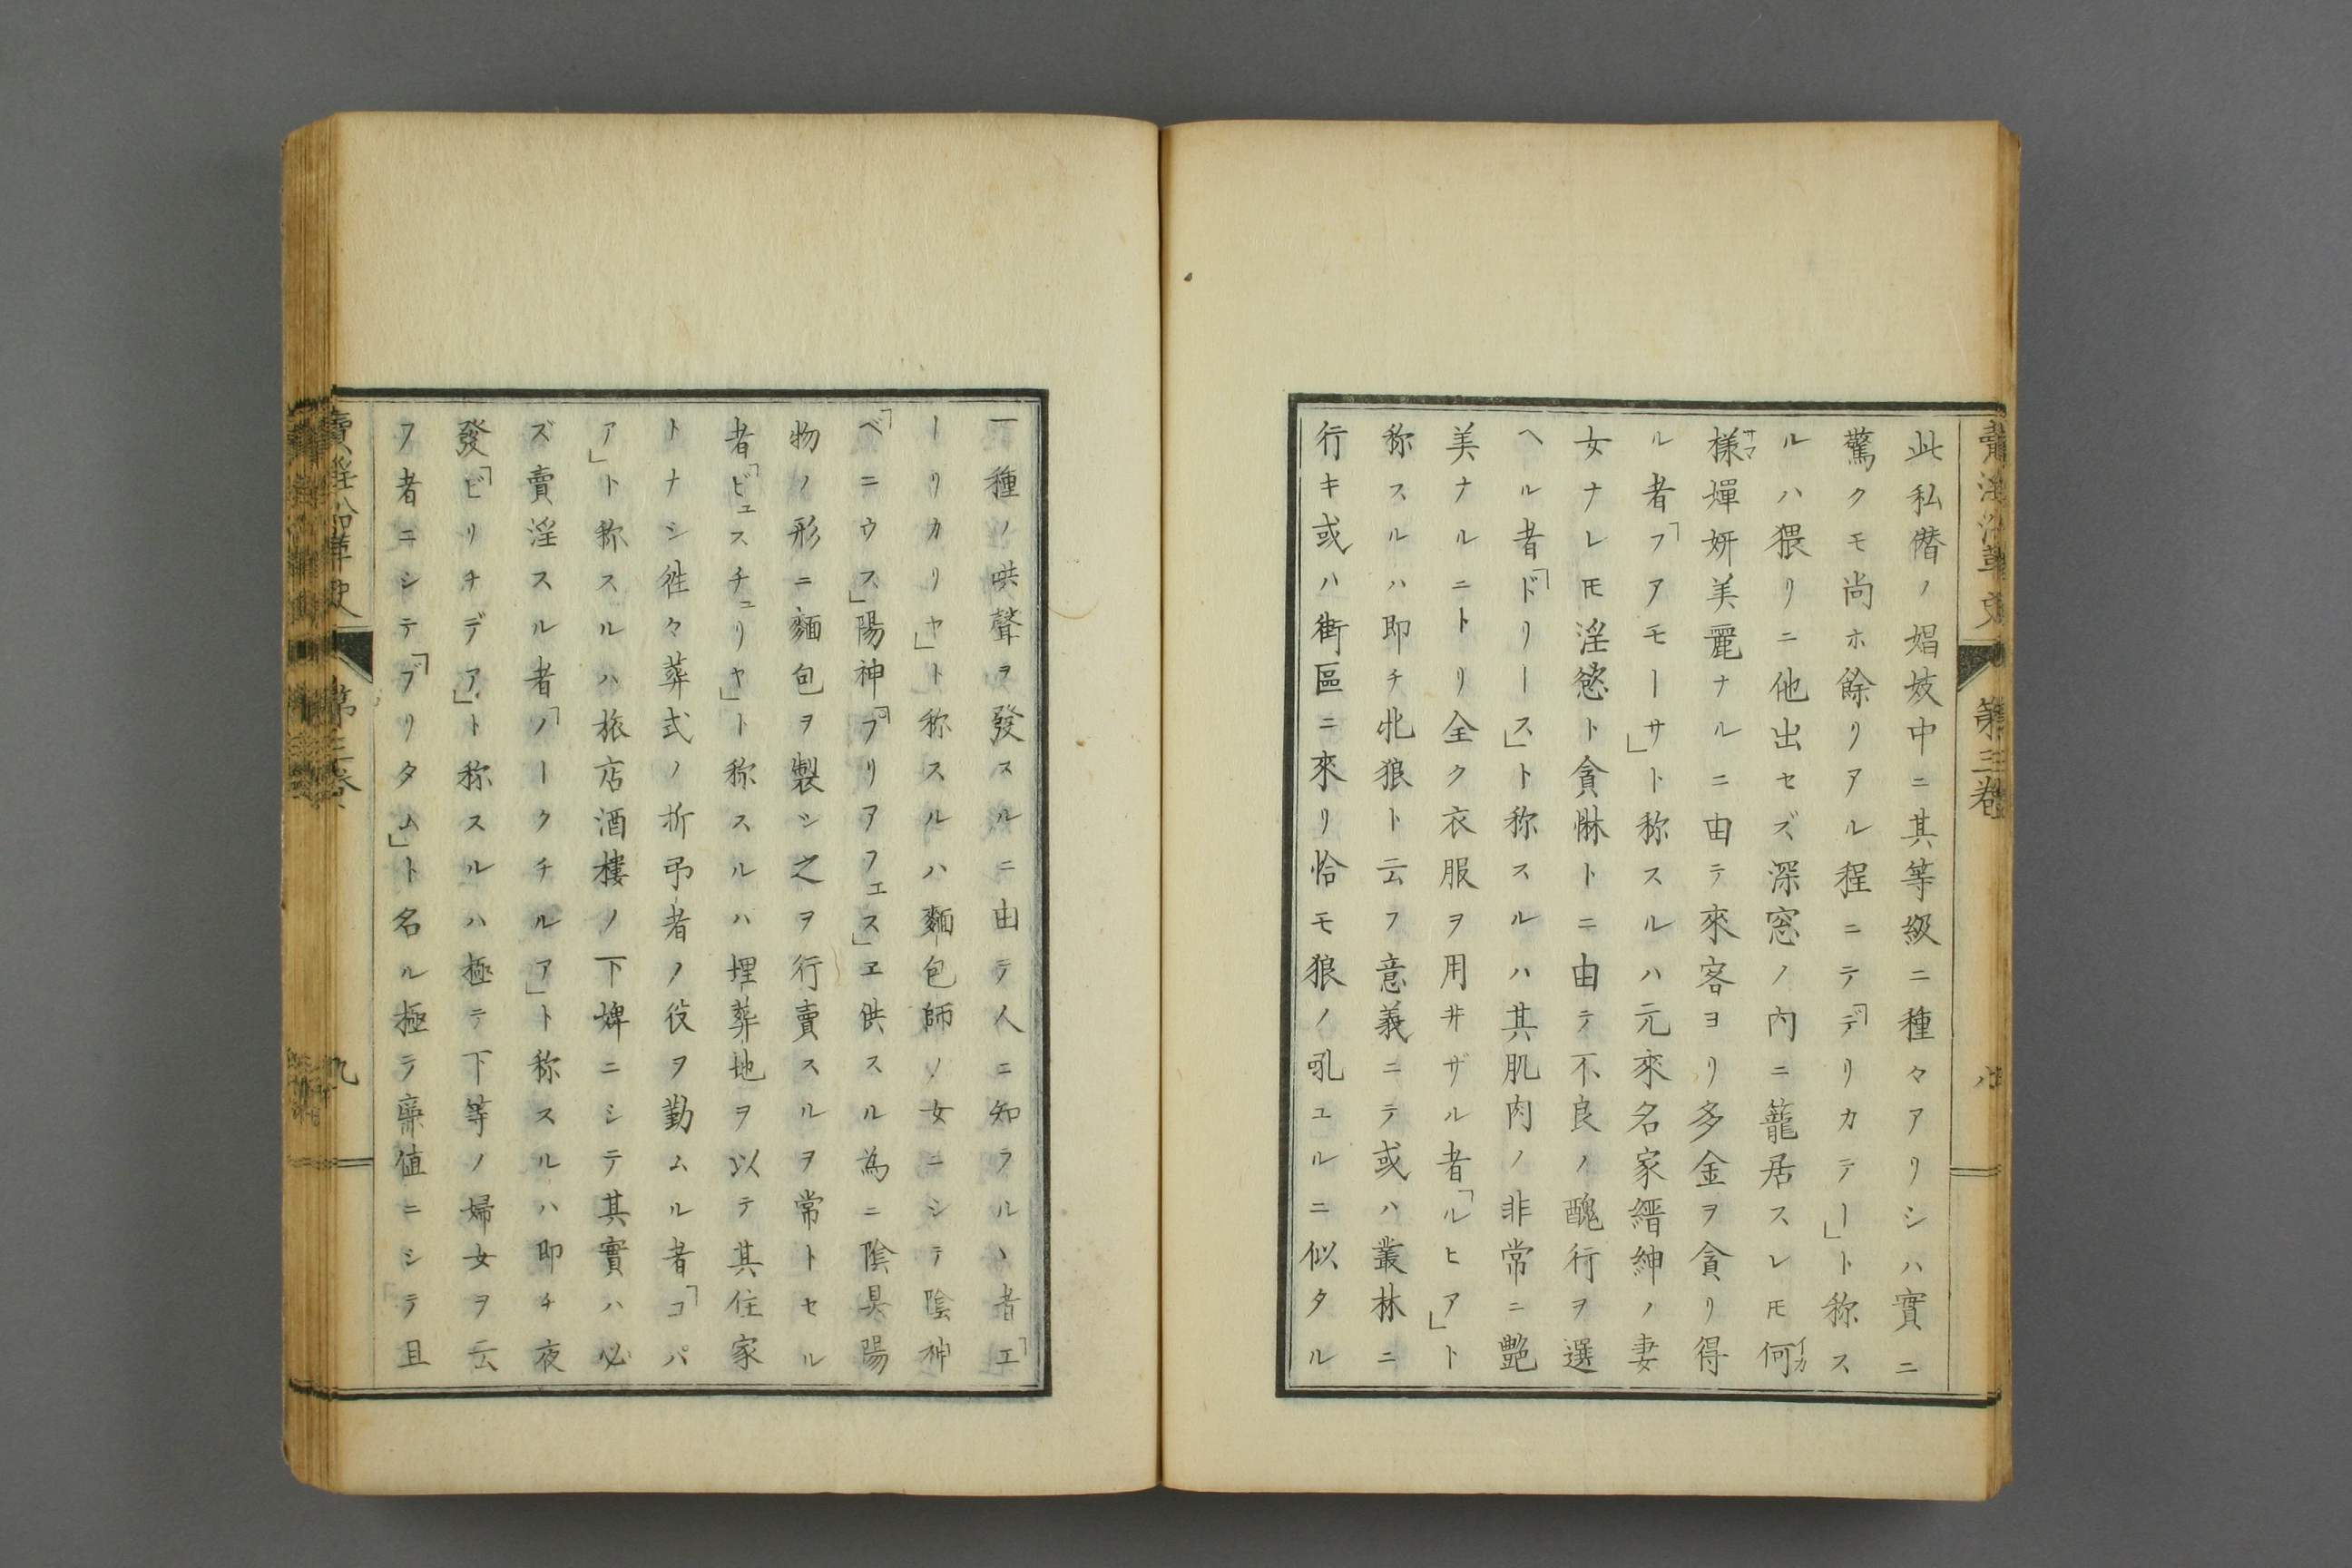 賣淫沿革史 第三卷 八
此私僭ノ娼妓中ニ其等級ニ種々アリシハ實ニ
驚クモ尚ホ餘リアル程ニテ「デリカテー」ト称ス
ルハ猥リニ他出セズ深窓ノ内ニ籠居スレ𪜈何イカ
様サマ嬋妍美麗ナルニ由テ來客ヨリ多金ヲ貪リ得
ル者「フアモーサ」ト称スルハ元來名家縉紳ノ妻
女ナレ𪜈淫慾ト貪惏トニ由テ不良ノ醜行ヲ選
ヘル者「ドリース」ト称スルハ其肌肉ノ非常ニ艶
美ナルニトリ全ク衣服ヲ用井ザル者「ルヒア」ト
称スルハ即チ牝狼ト云フ意義ニテ或ハ叢林ニ
行キ或ハ街區ニ來リ恰モ狼ノ吼ユルニ似タル
一種ノ哄聲ヲ發スルニ由テ人ニ知ラルヽ者「エ
ーリカリヤ」ト称スルハ麵包師ノ女ニシテ陰神
「ベニウス」陽神「プリアフェス」ヱ供スル為ニ陰具陽
物ノ形ニ麵包ヲ製シ之ヲ行賣スルヲ常トセル
者「ビュスチュリヤ」ト称スルハ埋葬地ヲ以テ其住家
トナシ徃々葬式ノ折弔者ノ役ヲ勤ムル者「コパ
ア」ト称スルハ旅店酒樓ノ下婢ニシテ其實ハ必
ズ賣淫スル者「ノークチルア」ト称スルハ即チ夜
發「ビリチデア」ト称スルハ極テ下等ノ婦女ヲ云
フ者ニシテ「ブリタム」ト名ル極テ廉値ニシテ且
賣淫沿革史 第三卷 九